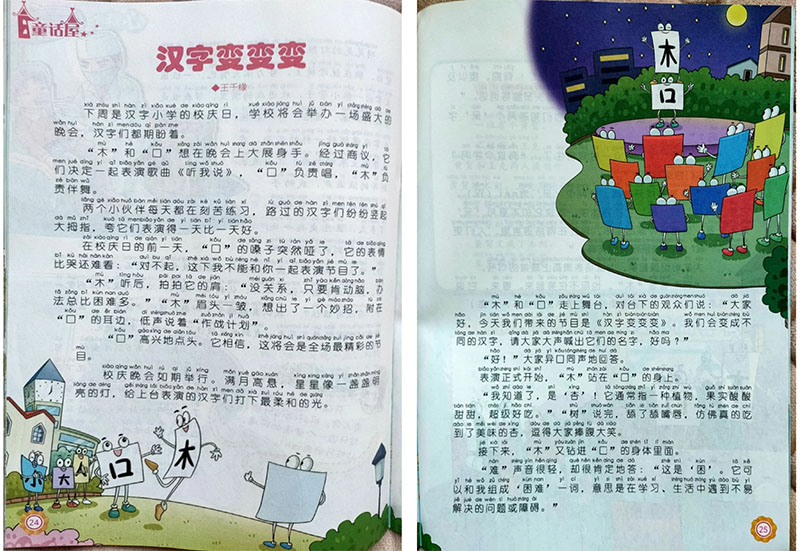 童话屋
汉字变变变
◆王千缘
下周是汉字小学的校庆日，学校将会举办一场盛大的
晚会，汉字们都期盼着。
“木”和“口”想在晚会上大展身手。经过商议，它
们决定一起表演歌曲《听我说》，“口”负责唱，“木”负
责伴舞。
两个小伙伴每天都在刻苦练习，路过的汉字们纷纷竖起
大拇指，夸它们表演得一天比一天好。
在校庆日的前一天，“口”的嗓子突然哑了，它的表情
比哭还难看：“对不起，这下我不能和你一起表演节目了。”
“木”听后，拍拍它的肩：“没关系，只要肯动脑，办
法总比困难多。”“木”眉头一皱，想出了一个妙招，附在
“口”的耳边，低声说着“作战计划”。
“口”高兴地点头。它相信，这将会是全场最精彩的节
目。
校庆晚会如期举行。满月高悬，星星像一盏盏明
亮的灯，给上台表演的汉字们打下最柔和的光。
小
大
人
口
木
24
木
口
“木”和“口”走上舞台，对台下的观众们说：“大家
好，今天我们带来的节目是《汉字变变变》。我们会变成不
同的汉字，请大家大声喊出它们的名字，好吗？”
“好！”大家异口同声地回答。
表演正式开始，“木”站在“口”的身上。
“我知道了，是‘杏’！它通常指一种植物，果实酸酸
甜甜，超级好吃。”“树”说完，舔了舔嘴唇，仿佛真的吃
到了美味的杏，逗得大家捧腹大笑。
接下来，“木”又钻进“口”的身体里面。
“难”声音很轻，却很肯定地答：“这是‘困’。它可
以和我组成‘困难’一词，意思是在学习、生活中遇到不易
解决的问题或障碍。”
25